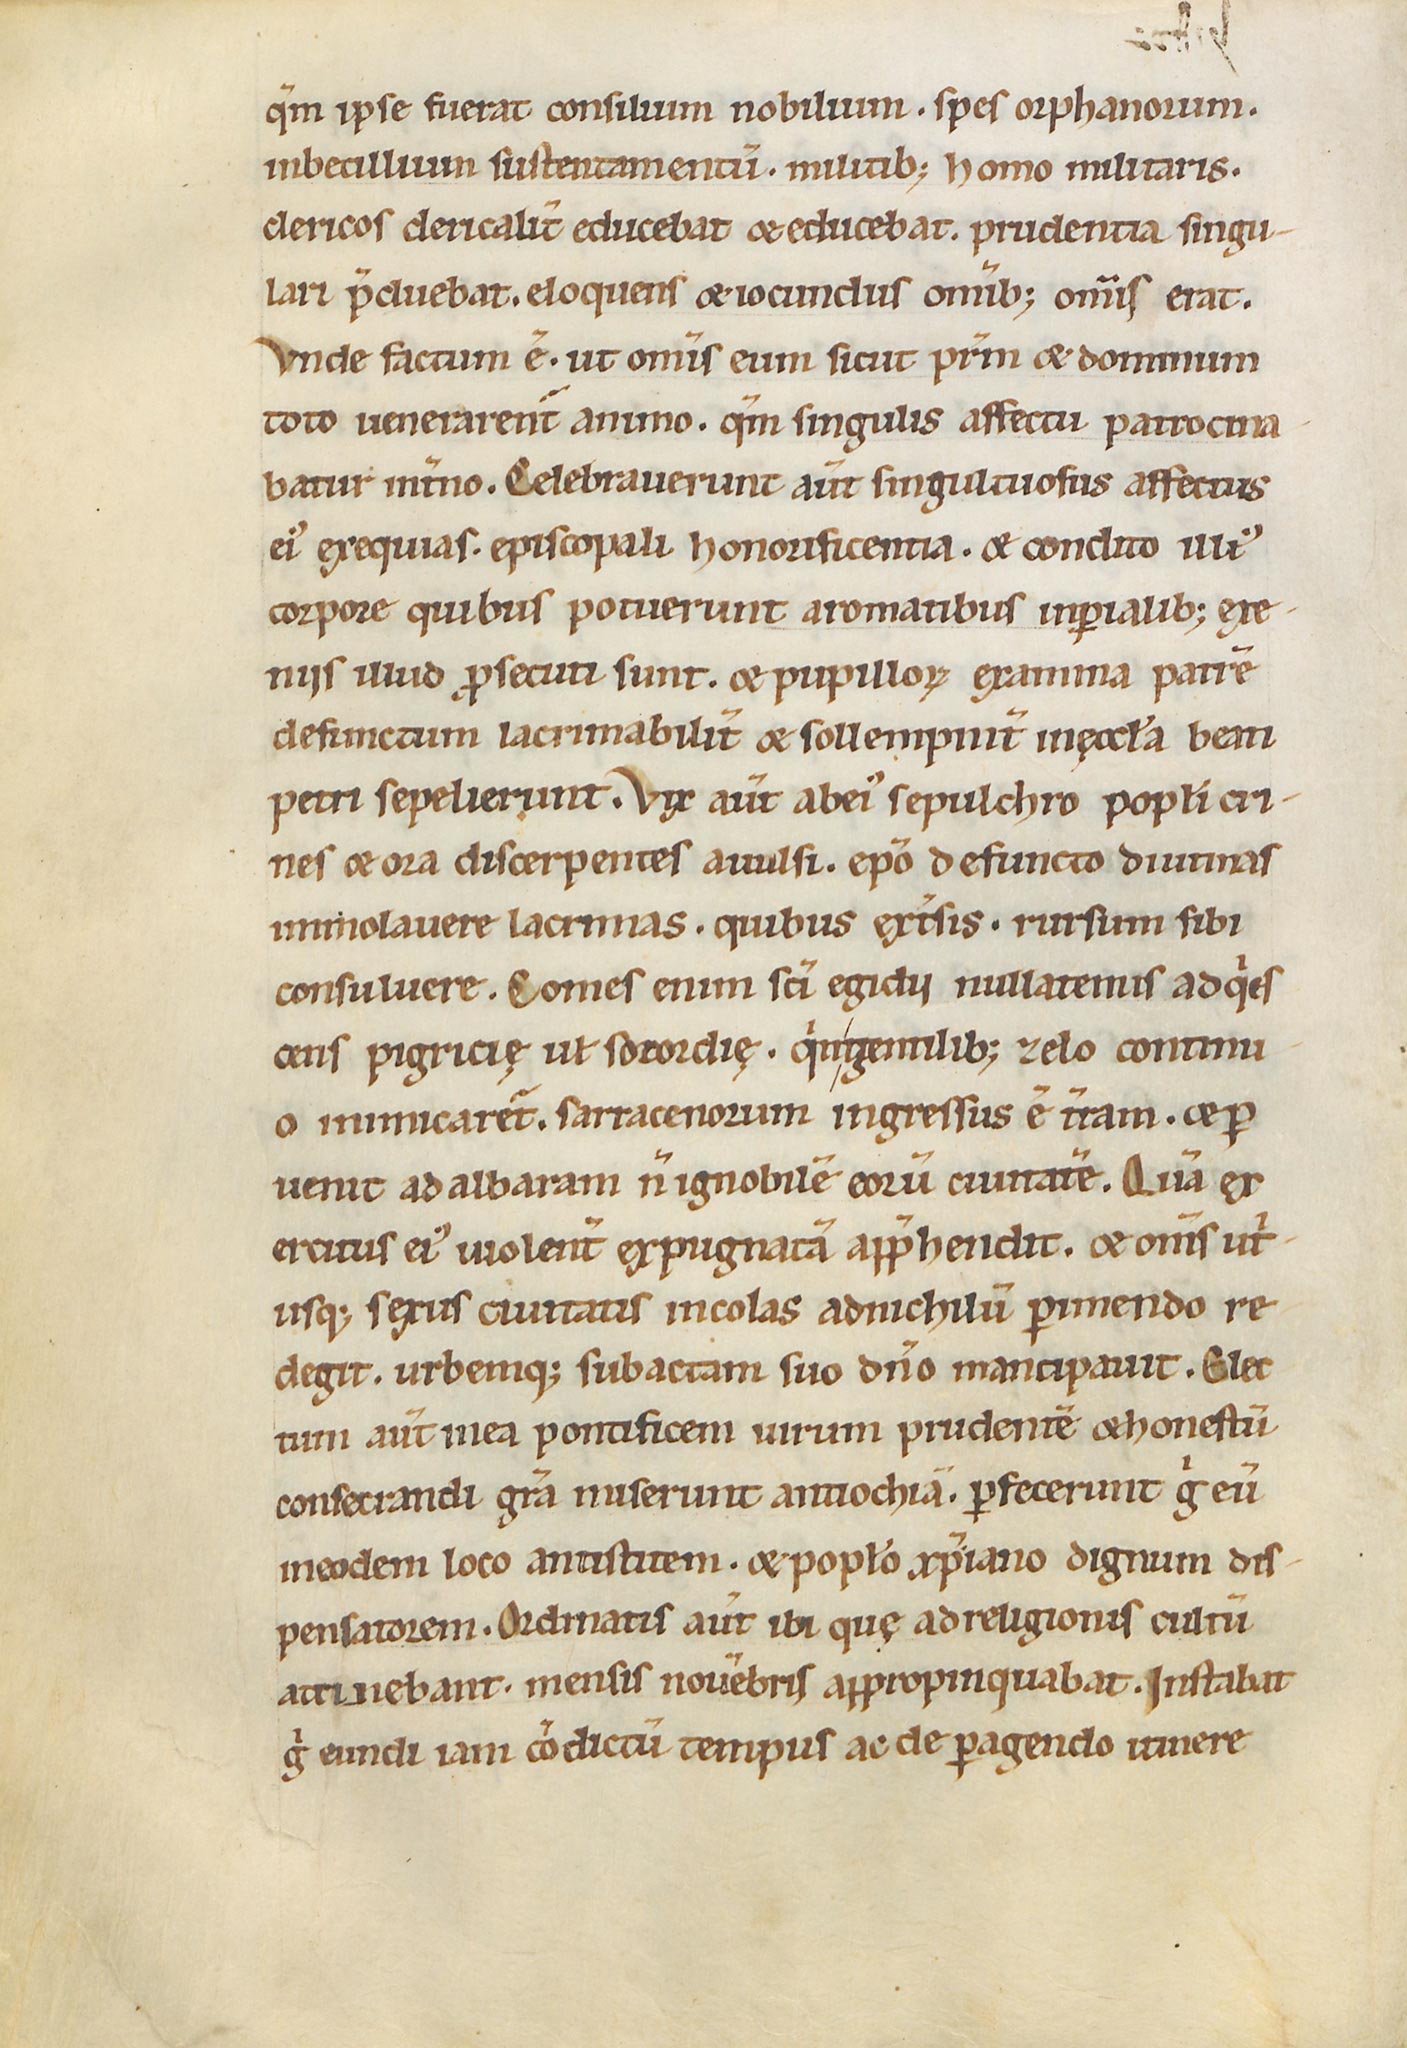 qm̄ ipse fuerat consilium nobilium. spes orphanorum.
inbecillium sustentamentū. militib; homo militaris.
clericos clericalit̄ educebat & educebat. prudentia singu-
lari p̄cluebat. eloquens & iocundus om̄ib; om̄is erat.
Vnde factum ē. ut om̄is eum sicut pr̄m & dominum
toto uenerarent̄ animo. qm̄ singulis affectu patrocina
batur int̄no. Celebrauerunt aūt singultuosus affectus
ei᾽ exequias. episcopali honorificentia. & condito illi᾽
corpore quibus potuerunt aromatibus inꝑialib; exe-
niis illud ꝓsecuti sunt. & pupilloꝝ examina patrē
defunctum lacrimabilit̄ & sollempnit̄ inęccƚa beati
petri sepelierunt. Vix aūt abei᾽ sepulchro popƚi cri-
nes & ora discerpentes auulsi. ep̄o defuncto diutinas
immolauere lacrimas. quibus ext̄sis. rursum sibi
consuluere. Comes enim sc̄i egidij nullatenus adq̇es
cens pigricię uƚ socordię. q̇n gentilib; zelo continu
o inimicaret̄. sarracenorum ingressus ē t̄ram. & ꝑ
uenit ad albaram n̄ ignobilē eorū ciuitatē. Quā ex
ercitus ei᾽ uiolent̄ expugnatā app̄hendit. & om̄is ut̍-
usq; sexus ciuitatis incolas adnichilū ꝑimendo re
degit. urbemq; subactam suo dn̄o mancipauit. Elec
tum aūt inea pontificem uirum prudentē & honestū
consecrandi gr̄a miserunt antiochiā. ꝑfecerunt g̍ eū
ineodem loco antistitem. & popƚo xp̄iano dignum dis-
pensatorem. Ordinatis aūt ibi quę ad religionis cultū
attinebant. mensis nouēbris appropinquabat. Instabat
g̍ eundi iam cōdictū tempus ac de ꝑagendo itinere